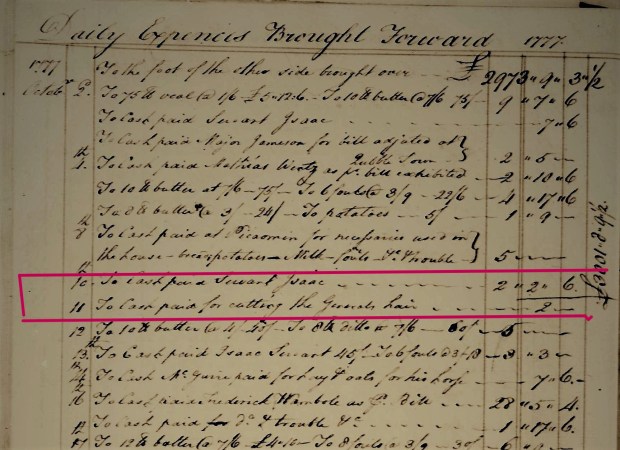 Daily Expences Brought Forward 1777
1777 To the foot of the other side brought over — £ 2973 " 9 " 3 " 1/2
Octobr 2. To 75 lb veal @ 1/6 — £5 " 12.6 — To 10 lb butter @ 7/6 75/ 9 " 7 " 6
To Cash paid Servant Isaac " 7 " 6
To Cash paid Major Jameson for bill adjusted at
Town 2 " 5 —
4. To Cash paid Mathias Wentz as pr. bill exhibited 2 " 18 " 6
To 10 lb butter at 7/6 — 75/ — To 6 fouls @ 3/9 — 22/6 4 " 17 " 6
To 8 lb butter @ 3/ — 24/ — To potatoes 5/ 1 " 9 —
8 To Cash paid at for necessaries used in
the house — potatoes — Milk — fouls & trouble 5 —
10. To Cash paid Servant Isaac 2 " 2 " 6.
11 To Cash paid for cutting the Generals hair — 2 —
12 To 10 lb butter @ — To 8 lb ditto @ 7/6 — 60/ 5 —
13. To Cash paid Isaac Servant 45/ — To 6 fouls @ 3 " 3 —
14 To Cash Mc. Guire paid for hay & oats for his horse " 7 " 6.
16 To Cash paid Frederick Wambole as pr. bill 28 " 5 " 4.
17 To Cash paid for do. & trouble &c 1 " 17 " 6.
17 To 12 lb butter @ 7/6 — £4 " 10 — To 8 fouls @ 3/9 — 30/ 6